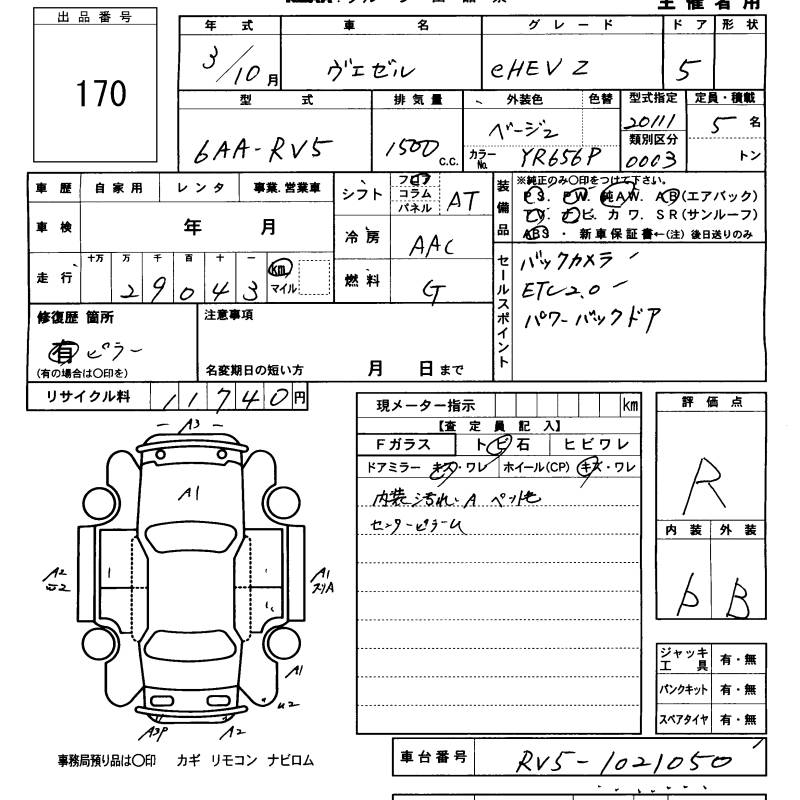 主催者用
出品番号
170
年式 車名 グレード ドア 形状
3/10月 ヴェゼル eHEV Z 5
型式 排気量 外装色 色替 型式指定 定員・積載
6AA-RV5 1500 C.C. ベージュ 20111 5名
カラーNo. YR656P 類別区分 0003 トン
車歴 自家用 レンタ 事業.営業車
車検 年 月
走行 十万 万 千 百 十 一
29043 km マイル
シフト フロア コラム パネル AT
冷房 AAC
燃料 G
装備品 ※純正のみ〇印をつけて下さい。
PS. PW. 純AW. AB(エアバック)
TV. ナビ. カワ. SR(サンルーフ)
ABS ・ 新車保証書←(注) 後日送りのみ
セールスポイント
バックカメラ
ETC2.0
パワーバックドア
修復歴 箇所
有 ピラー
(有の場合は〇印を)
注意事項
名変期日の短い方 月 日まで
リサイクル料 11740円
現メーター指示 km
【査定員記入】
Fガラス トビ石 ヒビワレ
ドアミラー キズ・ワレ ホイール(CP) キズ・ワレ
内装汚れ、A
センターピラー
評価点
R
内装 外装
B
A3
A1
A2
A1
A1
A2
ジャッキ工具 有・無
パンクキット 有・無
スペアタイヤ 有・無
事務局預り品は〇印 カギ リモコン ナビロム
車台番号 RV5-1021050